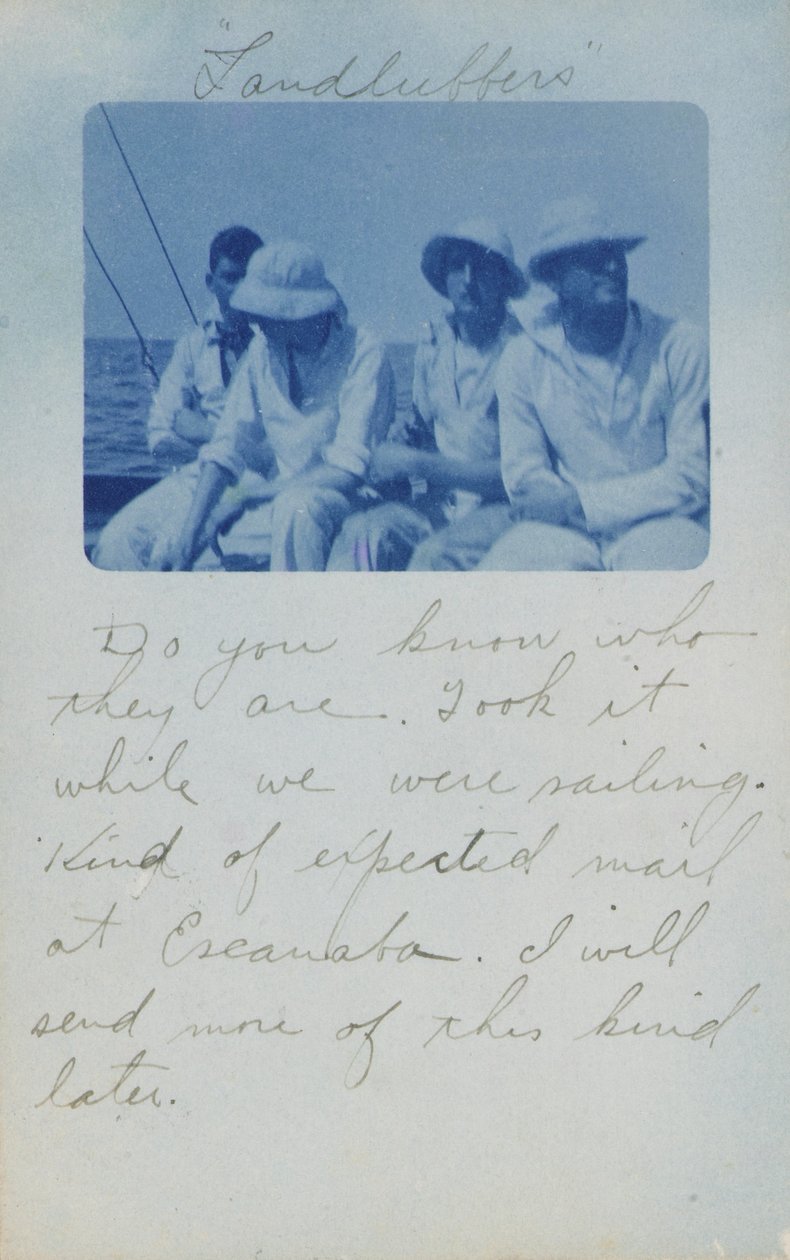 "Landlubbers"
Do you know who
they are. Took it
while we were sailing.
Kind of expected mail
at Escanaba. I will
send more of this kind
later.